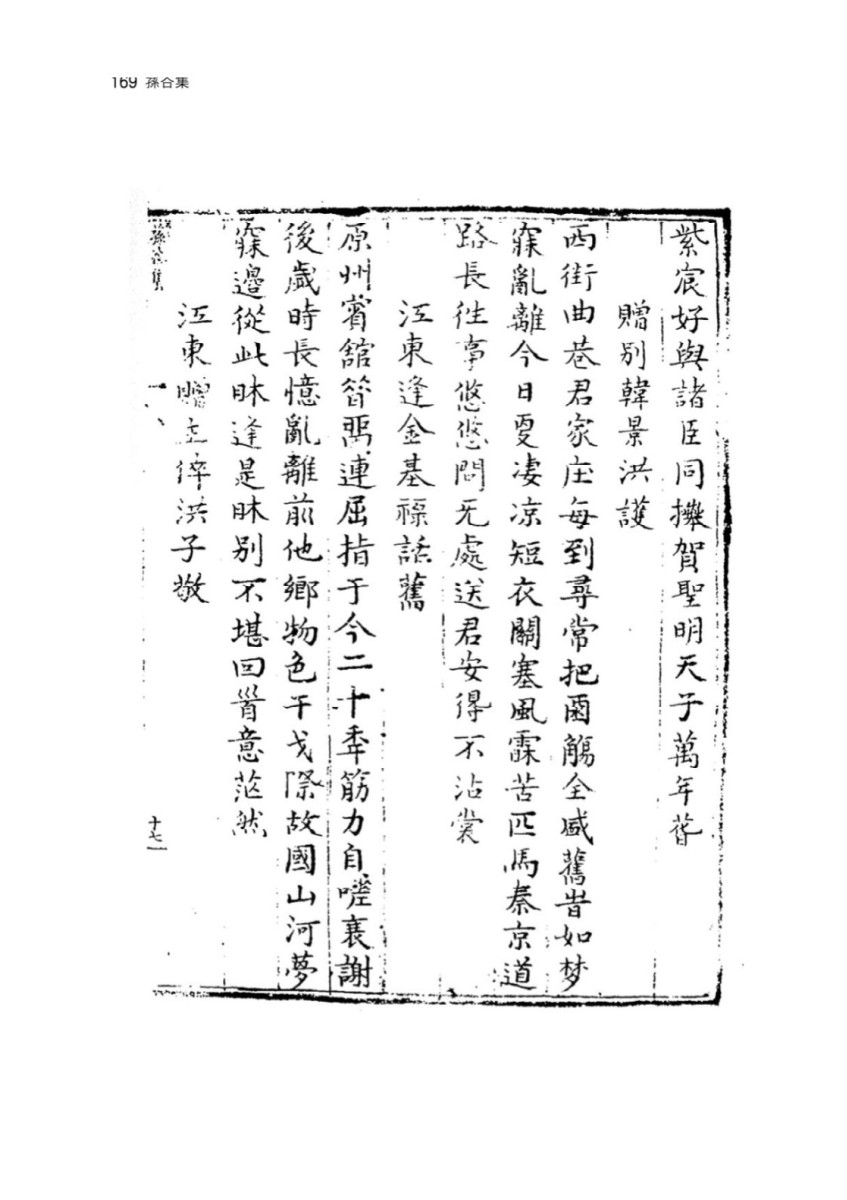 169 孫合集
紫宸好與諸臣同攤賀聖明天子萬年
贈別韓景洪護
西街曲巷君家庄每到尋常把觴全感舊昔如梦
寐亂離今日更凄凉短衣關塞風霖苦匹馬秦京道
路長往事悠悠問无處送君安得不沾裳
江東逢金基祿話舊
原州賓舘連屈指于今二十秊筋力自嗟衰謝
後歲時長憶亂離前他鄉物色干戈際故國山河夢
寐邊從此昧逢是昧别不堪回首意茫然
江東贈倅洪子敬
孫合集
十七